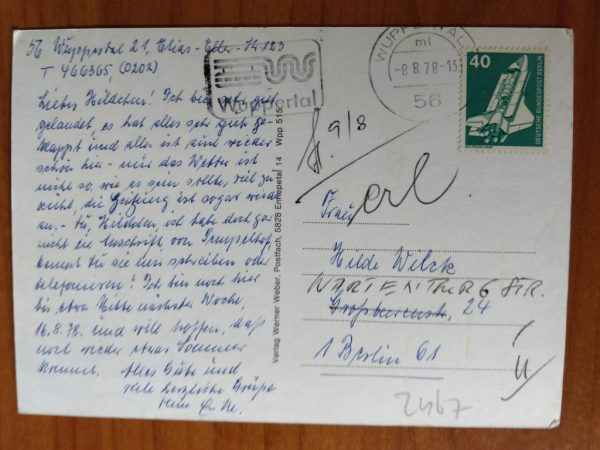 56 Wuppertal 21, Elias-Eller-Str. 123
T 466365, (0202)
Liebes Hildchen! Ich bin sehr gut
gelandet, es hat alles sehr gut ge-
klappt und alles ist wieder
schön hier - nur das Wetter ist
nicht so, wie es sein sollte, viel zu
kühl, die Heizung ist sogar wieder
an. - Du, Hildchen, ich habe doch gar
nicht die Anschrift von
kannst Du sie ihm schreiben oder
telefonieren? Ich bin noch hier
bis etwa Mitte nächster Woche,
16.8.78. und will hoffen, daß
noch wieder etwas Sommer
kommt. Alles Gute und
viele herzliche Grüße
Wuppertal
WUPPERTAL
ml
-8.8.78-13
56
40
DEUTSCHE BUNDESPOST BERLIN
Verlag Werner Weber, Postfach, 5828 Ennepetal 14 Wpp 515
9/8
erl.
Frau
Hilde Welck
24
1 Berlin 61
2467